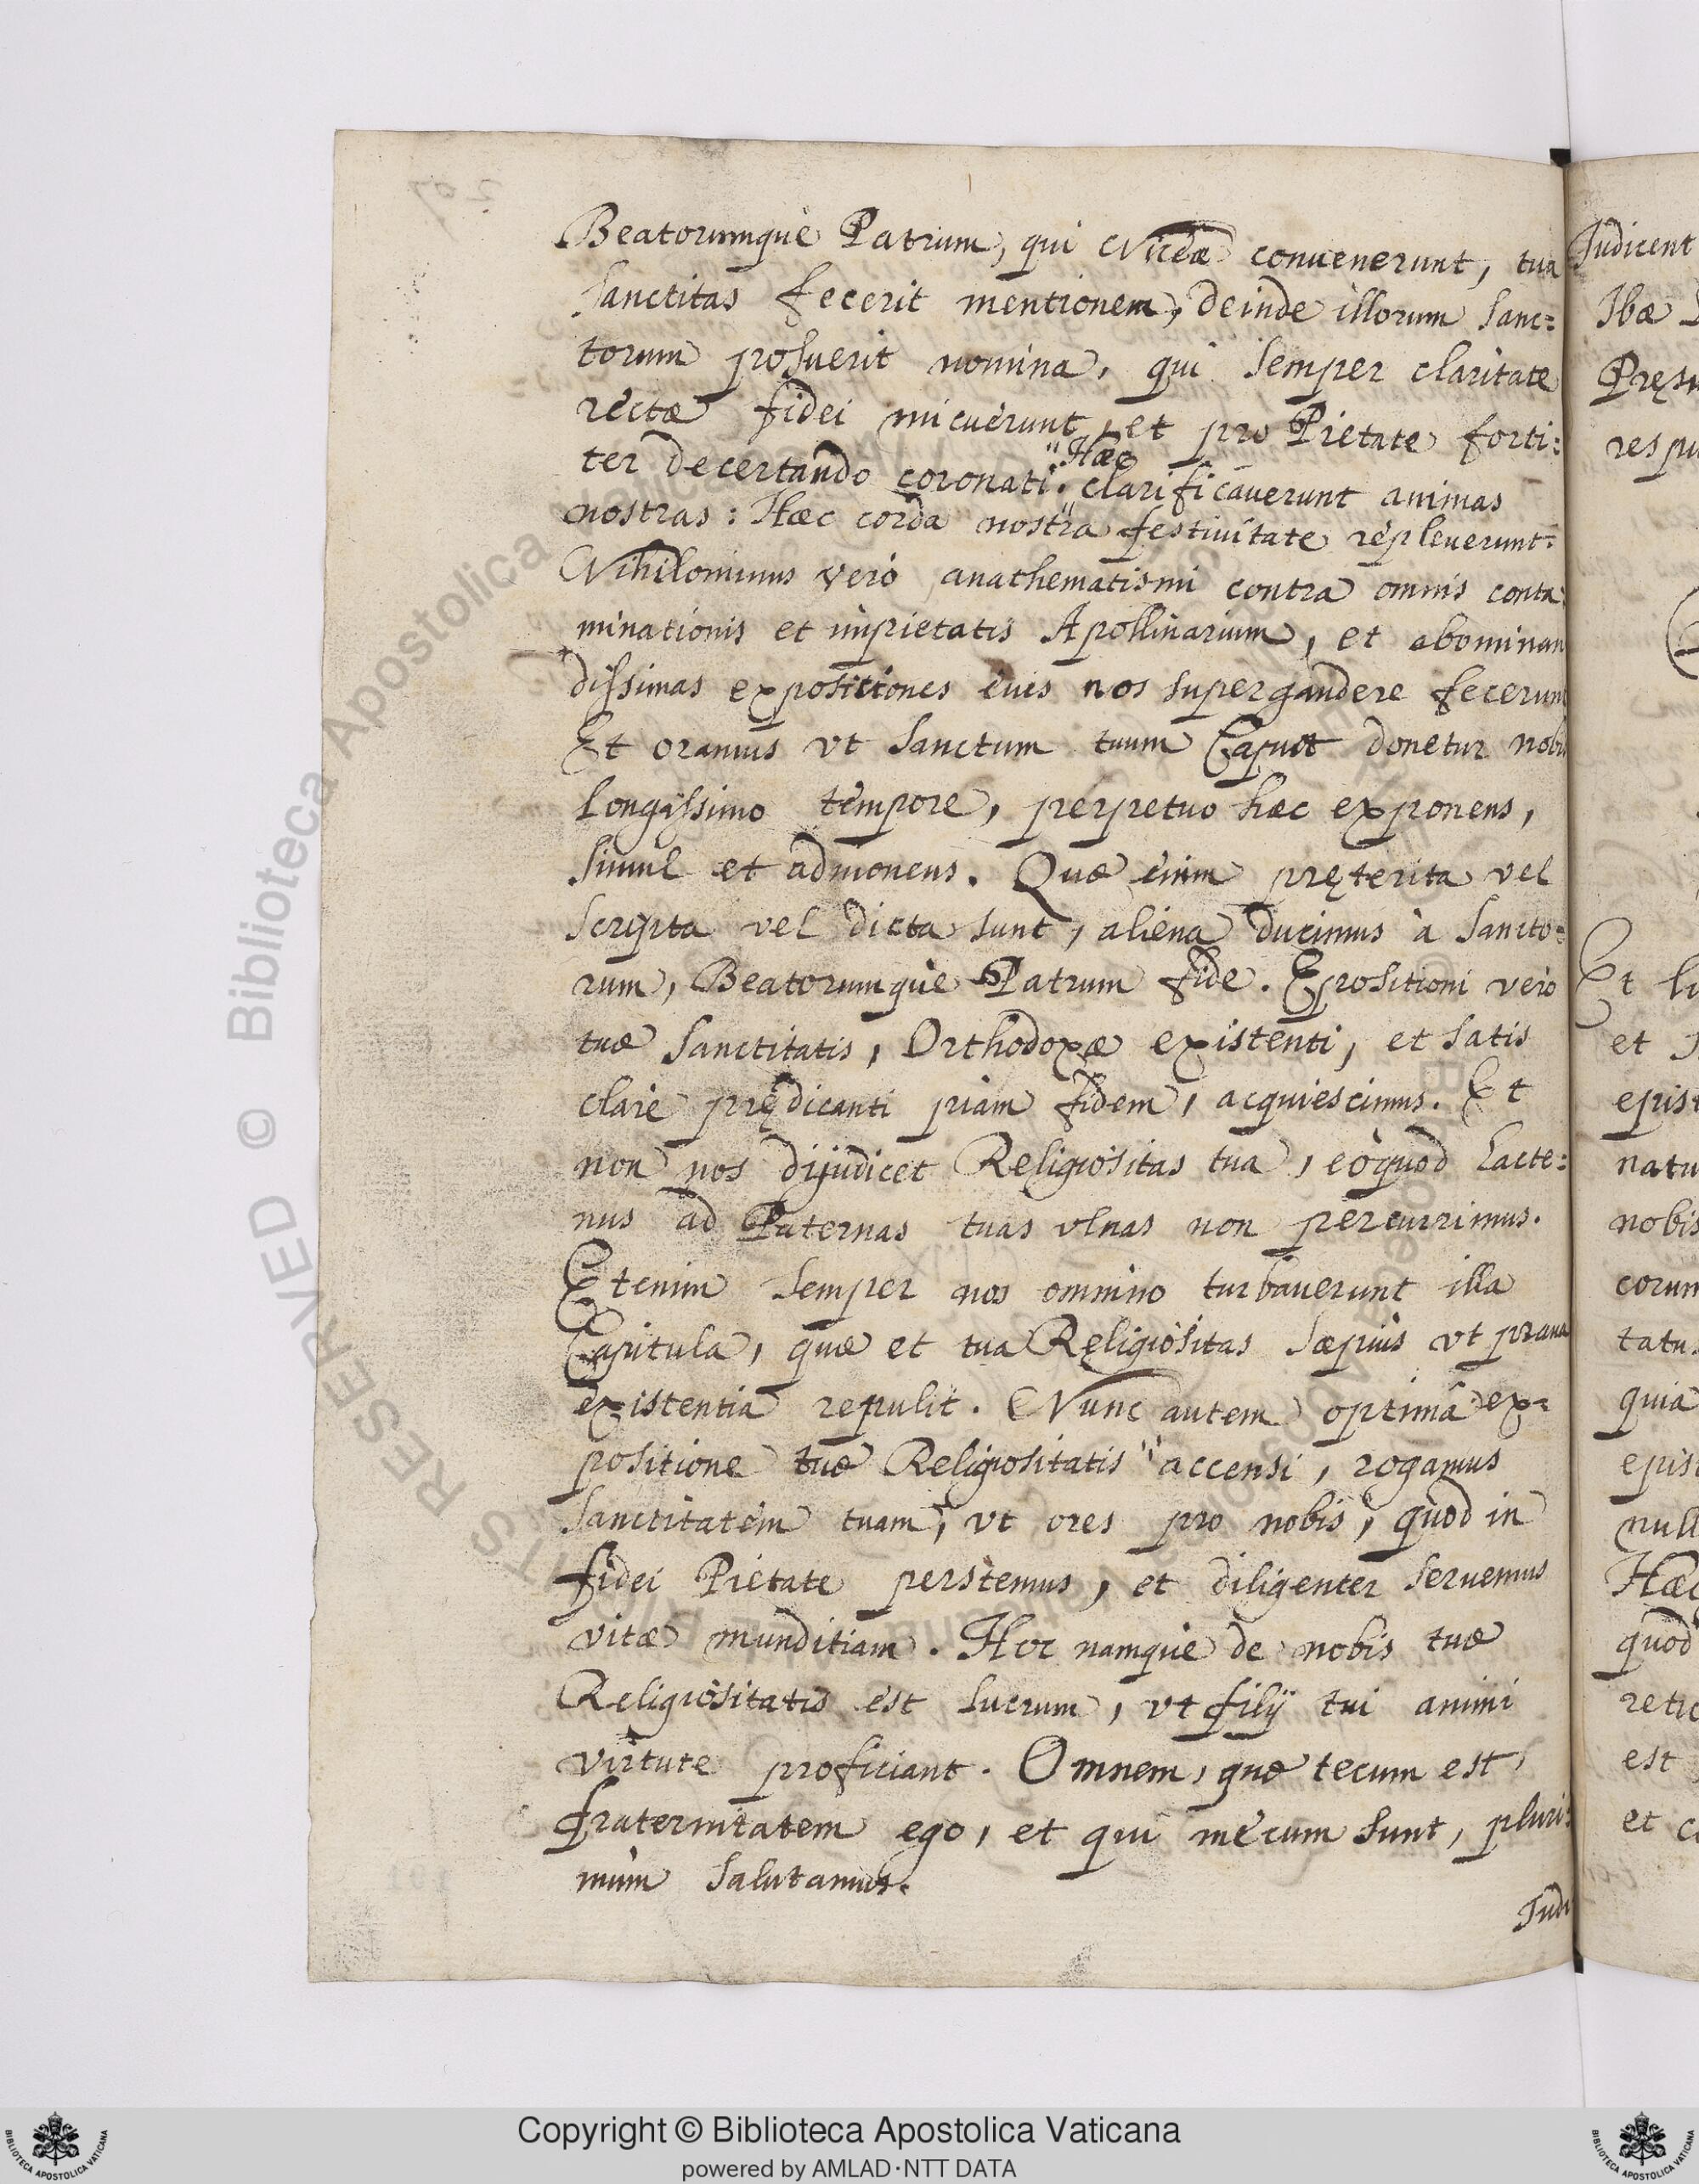 Beatorumquè Patrum, qui Niceæ conuenerunt, tua
sanctitas fecerit mentionem, deinde illorum sanc=
torum posuerit nomina, qui semper claritate
rectæ fidei micuerunt, et pro Pietate forti=
ter decertando coronati. "Hæc clarificauerunt animas
nostras: Hæc corda nostra festiuitate repleuerunt.
Nihilominus verò anathematismi contra omnis conta
minationis et impietatis Apollinarium, et abominan
dissimas expositiones eius nos supergaudere fecerunt
Et oramus vt sanctum tuum Caput donetur nobis
longissimo tempore, perpetuo hæc exponens,
simul et admonens. Quæ enim pręterita vel
scripta vel dicta sunt, aliena ducimus à sancto=
rum, Beatorumquè Patrum fide. Expositioni verò
tuæ sanctitatis, Orthodoxæ existenti, et satis
clarè prędicanti piam fidem, acquiescimus. Et
non nos dijudicet Religiositas tua, eòquod hacte=
nus ad Paternas tuas vlnas non percurrimus.
Etenim semper nos omnino turbauerunt illa
Capitula, quæ et tua Religiositas sæpius vt praua
existentia repulit. Nunc autem optimâ ex=
positione tuæ Religiositatis "accensi, rogamus
sanctitatem tuam, vt ores pro nobis, quòd in
fidei Pietate perstemus, et diligenter seruemus
vitæ munditiam. Hoc namquè de nobis tuæ
Religiositatis est lucrum, vt filij tui animi
virtute proficiant. Omnem, quæ tecum est,
fraternitatem ego, et qui mecum sunt, pluri=
mùm salutamus.
Iudi
Iudicent
Ibæ
Pręsu
respu
Et li
et
epist
natu
nobis
corum
tatu
quia
epist
null
Hæc
quod
retic
est
et c
© Biblioteca Apostolica Vaticana
RESERVED
Copyright © Biblioteca Apostolica Vaticana
powered by AMLAD·NTT DATA
BIBLIOTECA APOSTOLICA VATICANA
BIBLIOTECA APOSTOLICA VATICANA